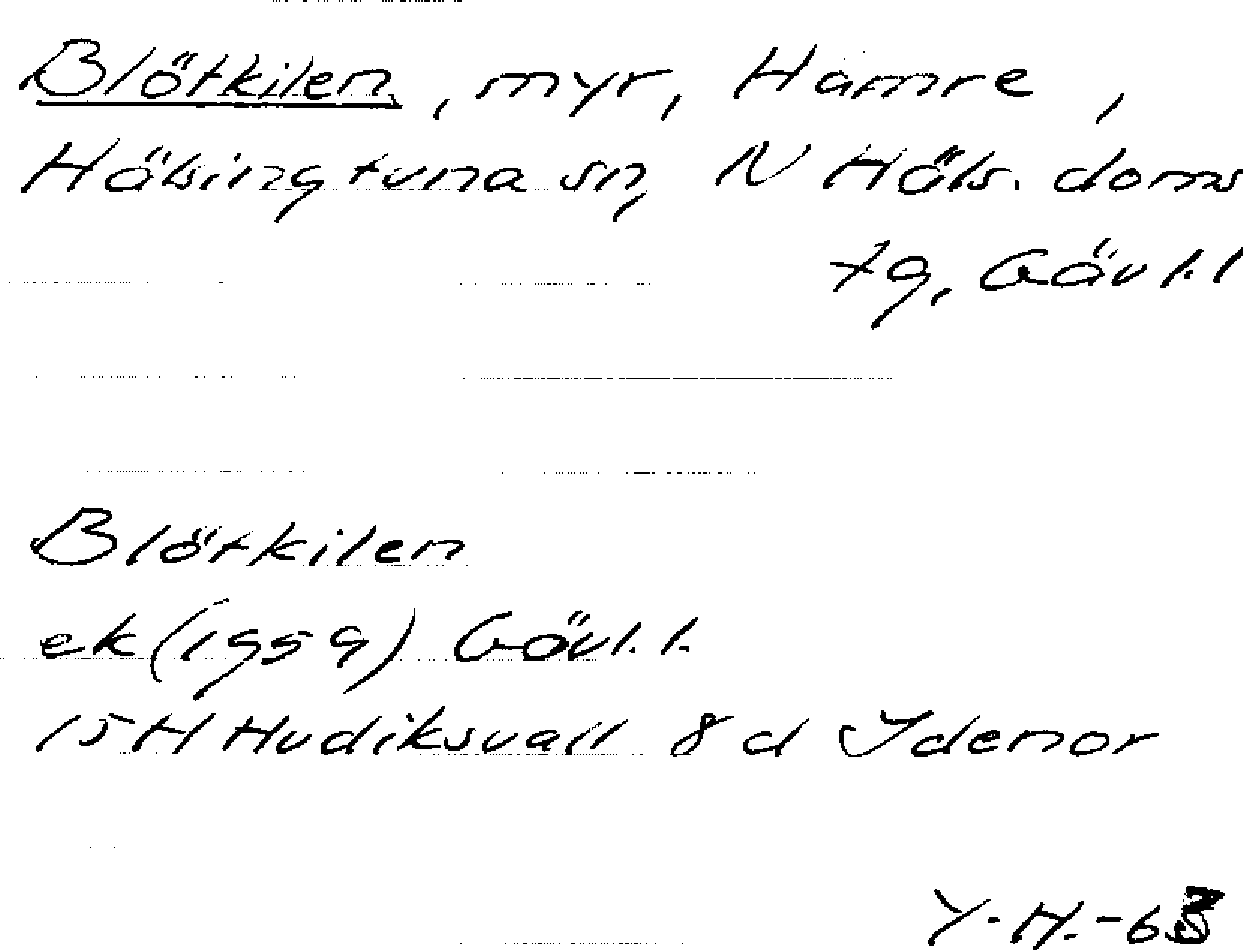 Blötkilen, myr, Hamre,
Hälsingtuna sn, N Häls. doms
tg, Gävl.l
Blötkilen
ek (1959) Gävl.l.
15H Hudiksvall 8d Idenor
Y.H.-63